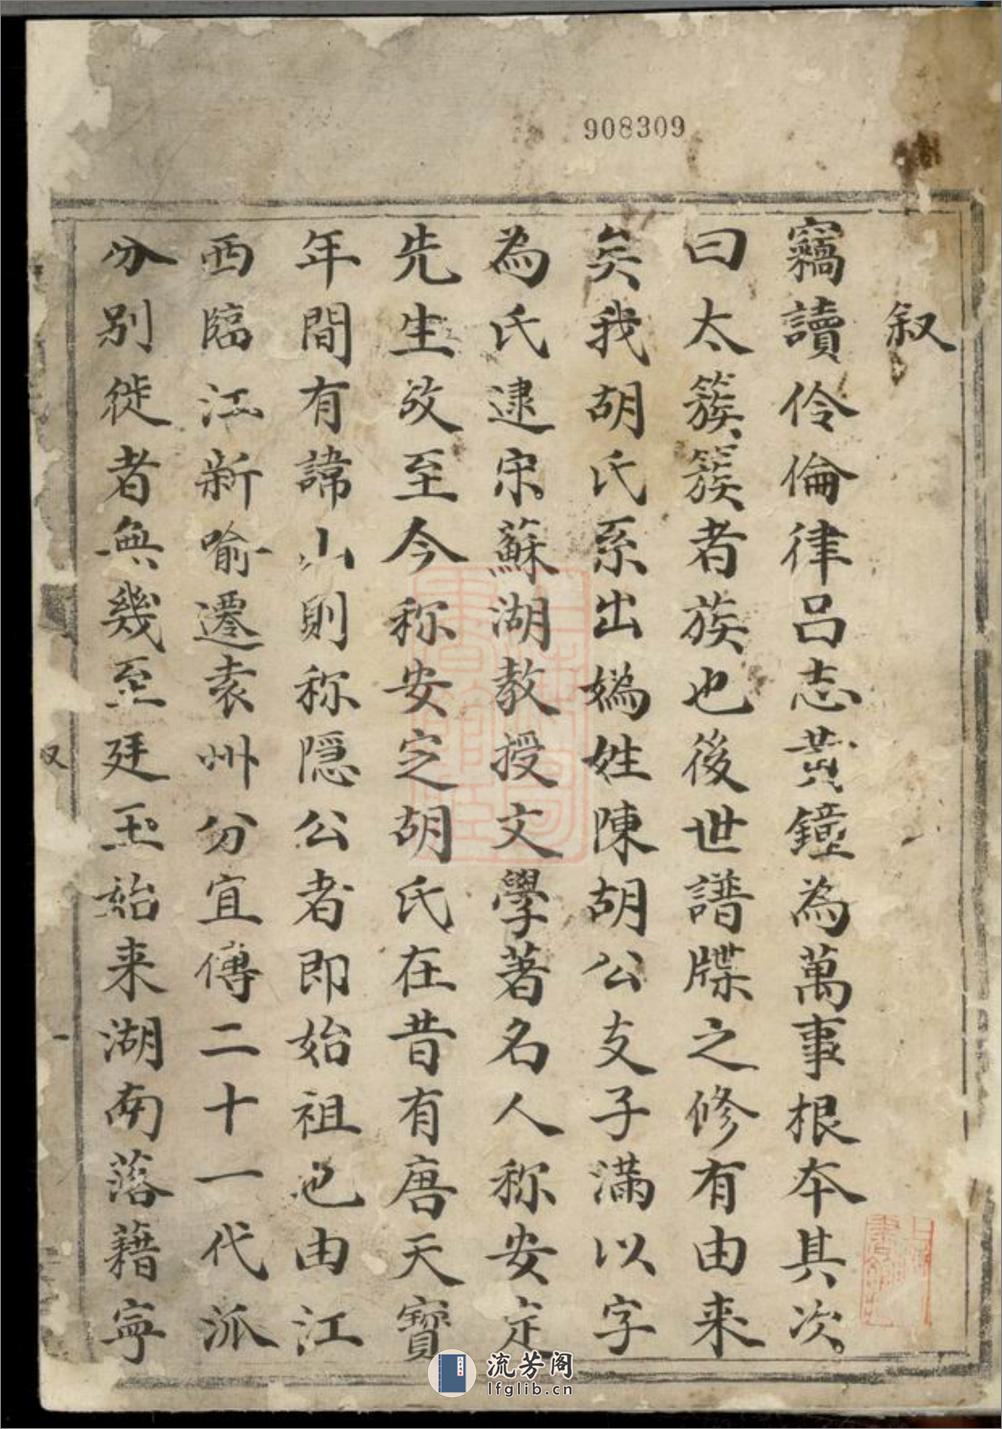 908309
叙
竊讀伶倫律呂志黄鐘為萬事根本其次
曰太簇簇者族也後世譜牒之修有由来
矣我胡氏系出媯姓陳胡公支子滿以字
為氏逮宋蘇湖教授文學著名人称安定
先生故至今称安定胡氏在昔有唐天寳
年間有諱山則称隠公者即始祖也由江
西臨江新喻遷袁州分宜傳二十一代派
分别徙者無幾至廷玉始来湖南落籍寧
流芳阁
lfglib.cn